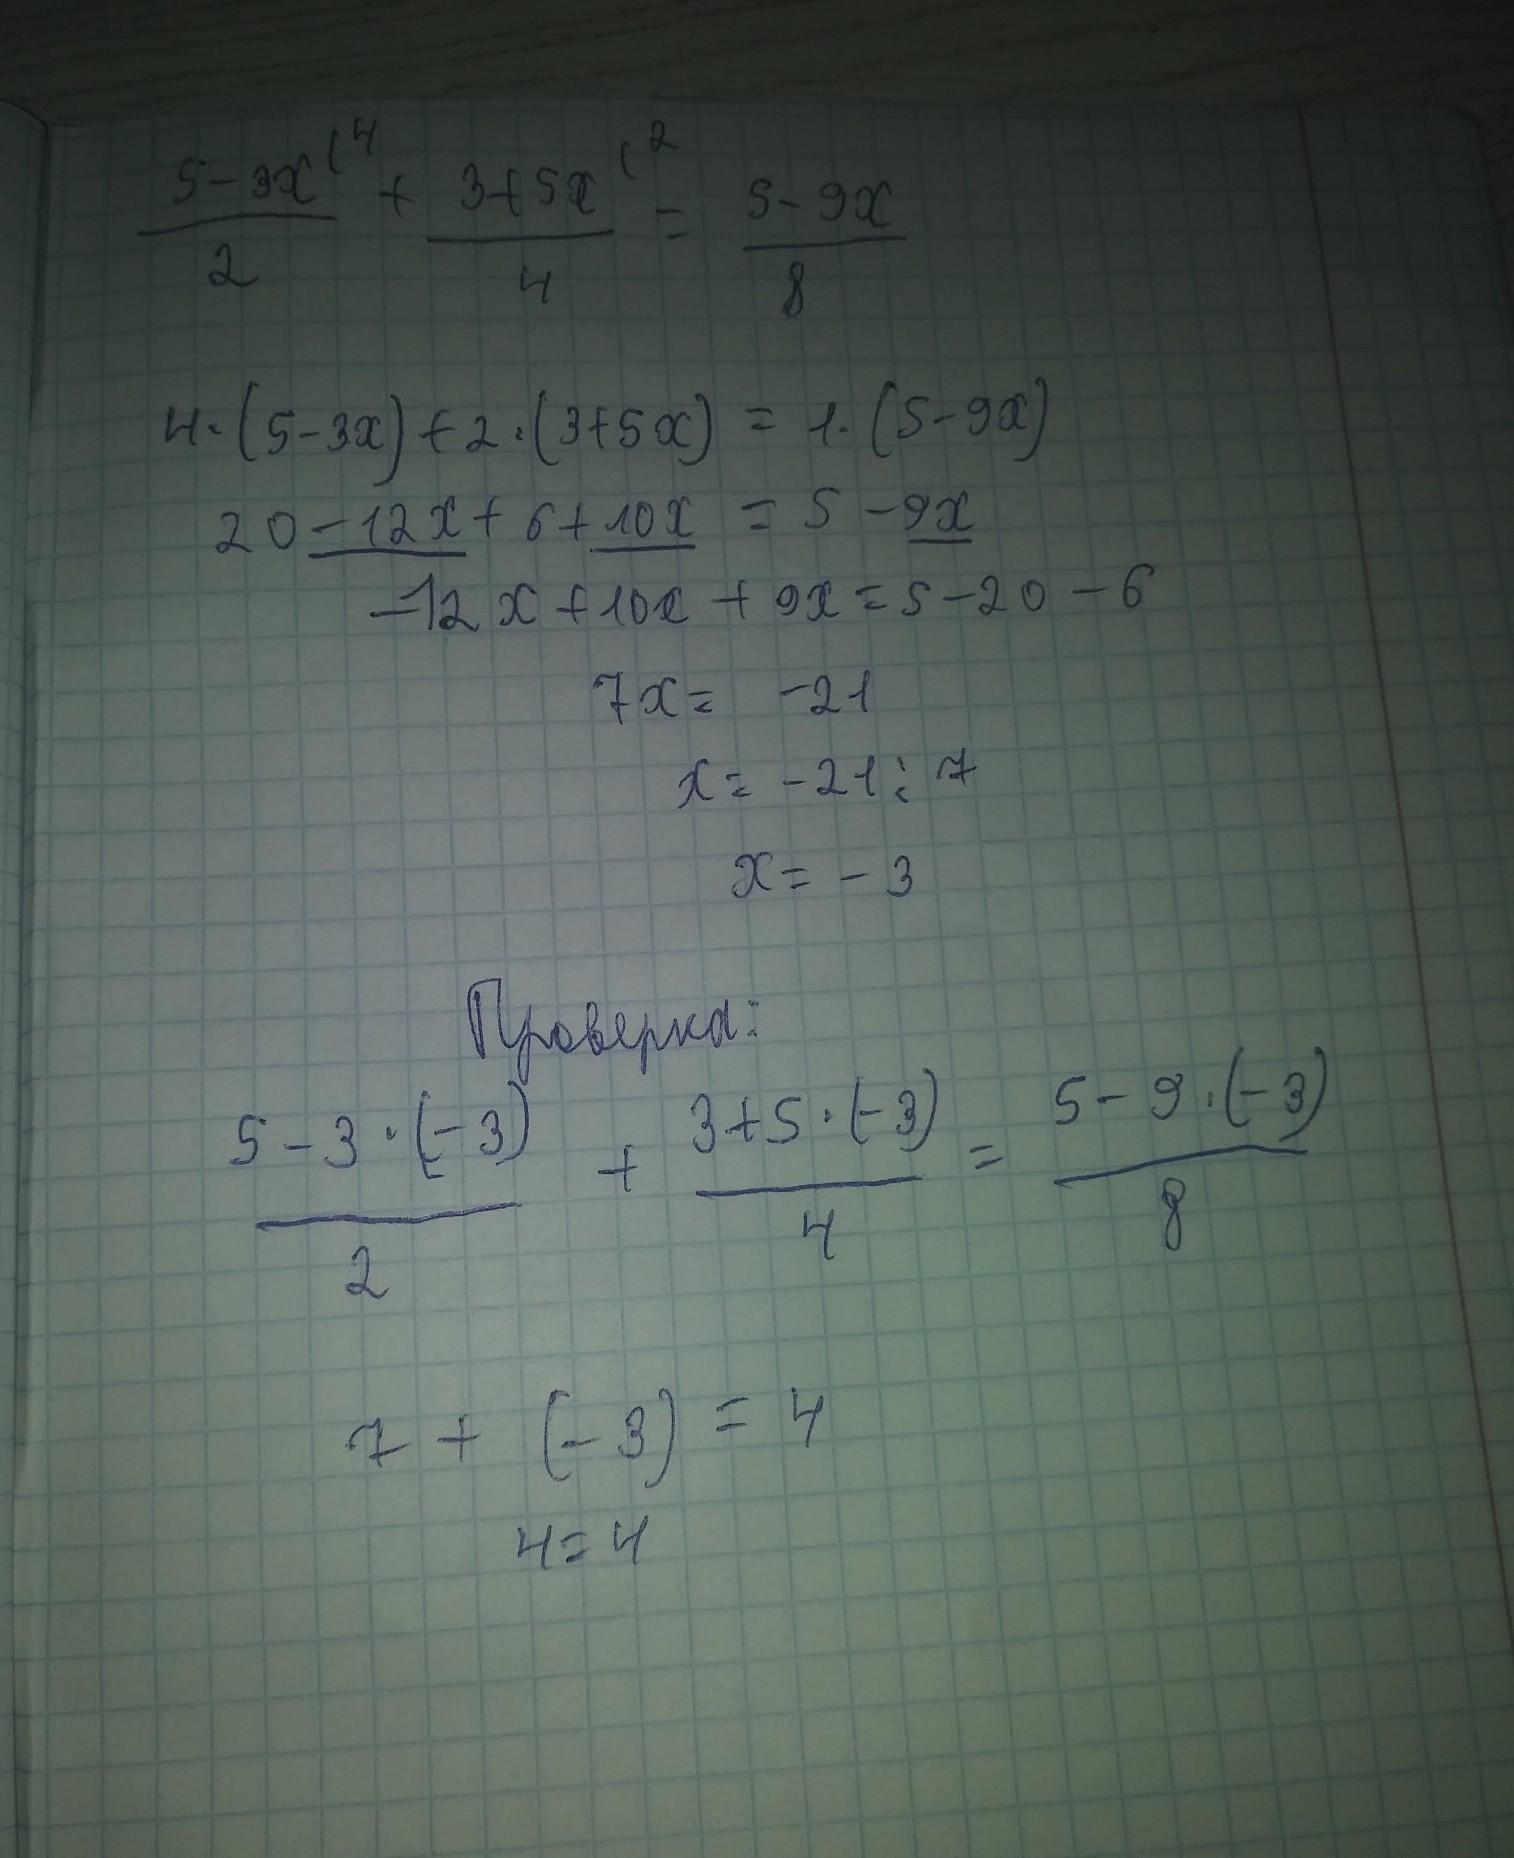 5-3x(4 + 3+5x(2 = 5-9x
2 4 8
4·(5-3x)+2·(3+5x) = 1·(5-9x)
20-12x+6+10x = 5-9x
-12x+10x+9x=5-20-6
7x= -21
x= -21:7
x= -3
Проверка:
5-3·(-3) + 3+5·(-3) = 5-9·(-3)
2 4 8
7 + (-3) = 4
4=4